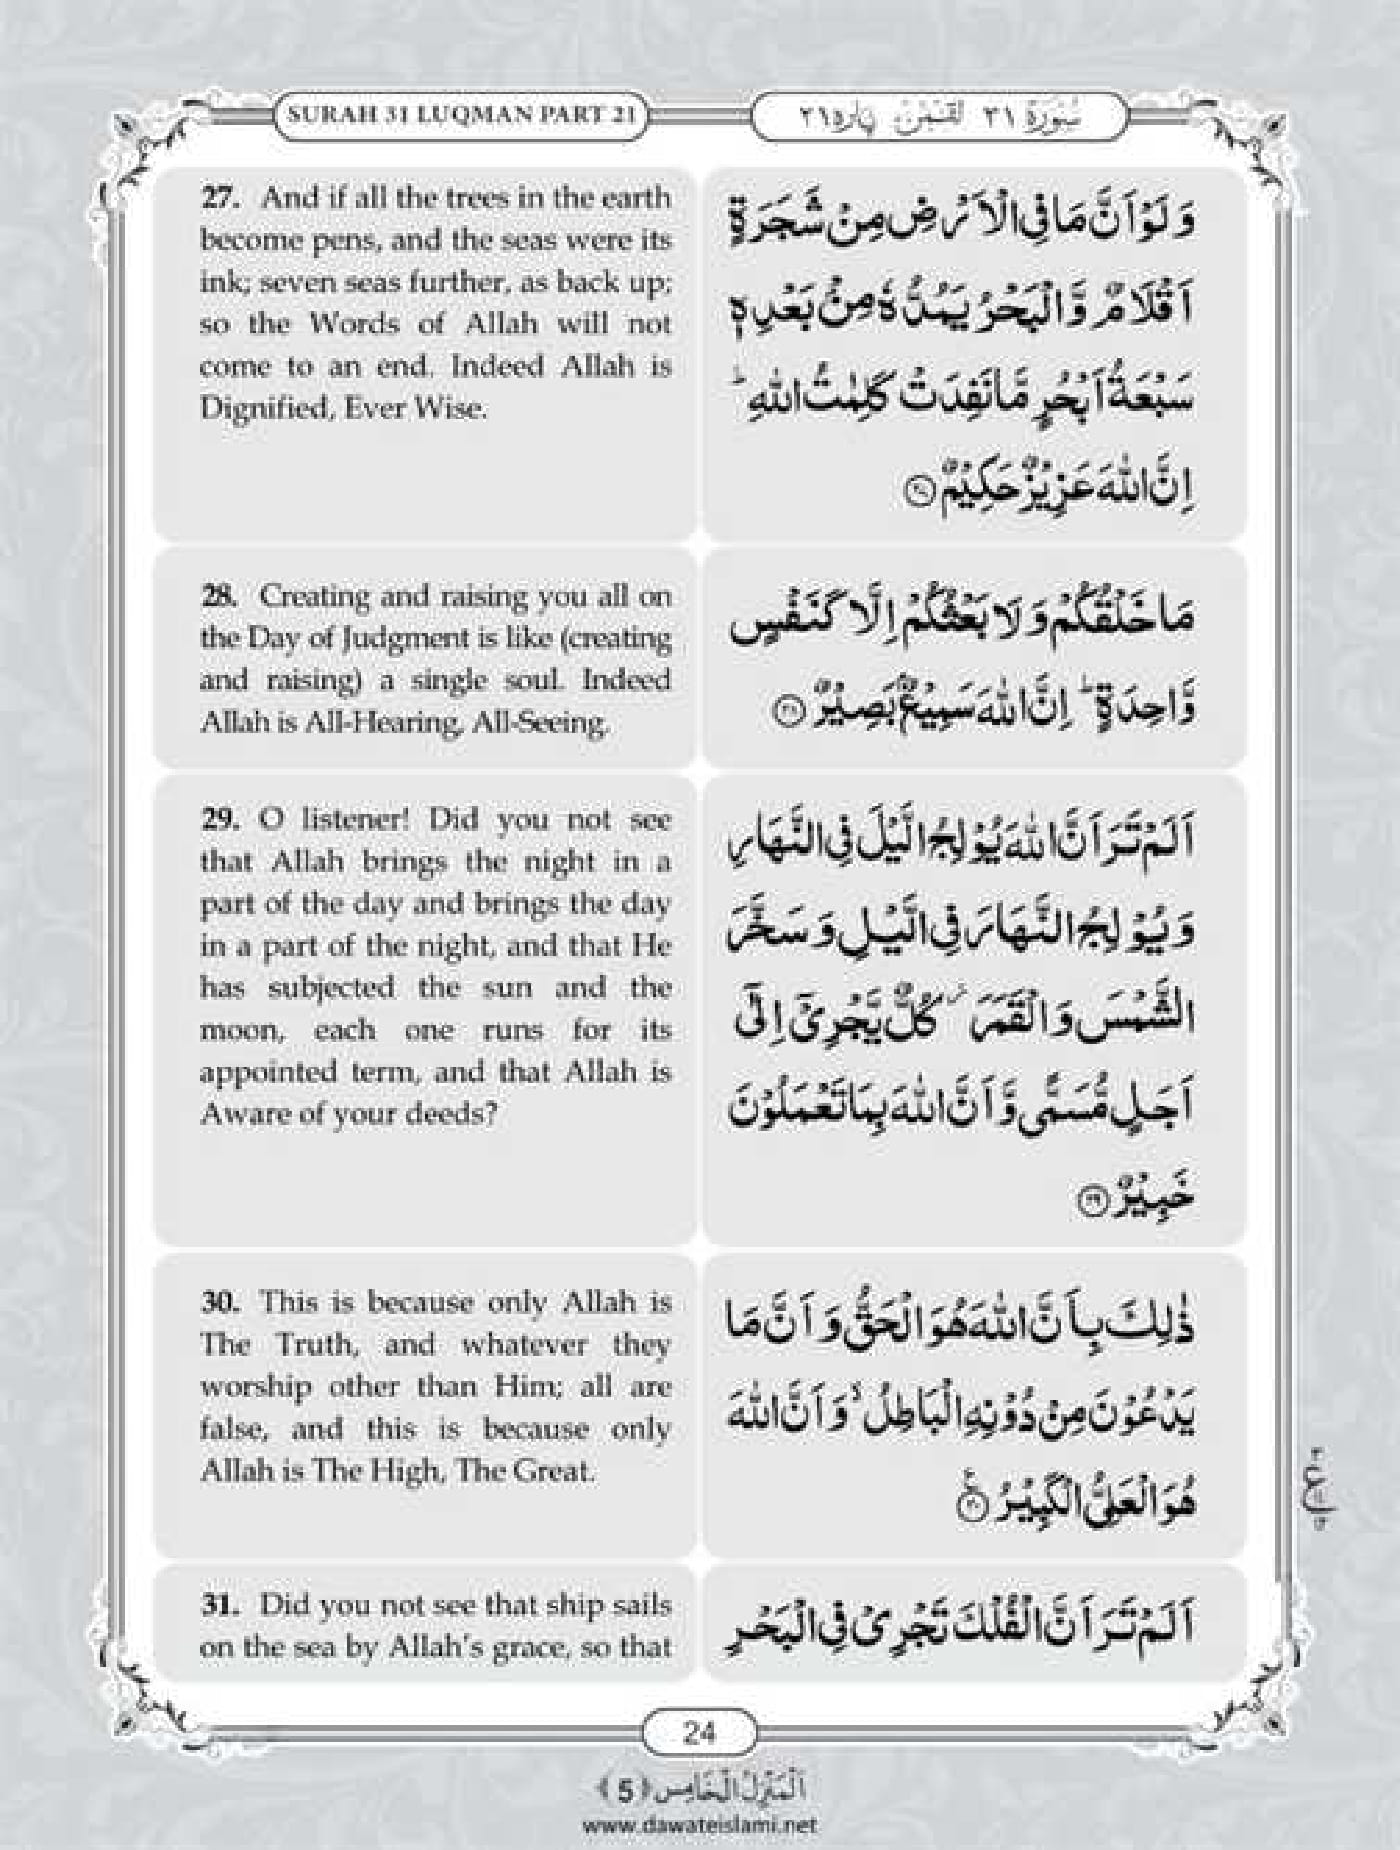 SURAH 31 LUQMAN PART 21
سُوْرَةُ ٣١ لُقْمٰن، پارہ ٢١
27. And if all the trees in the earth
become pens, and the seas were its
ink; seven seas further, as back up;
so the Words of Allah will not
come to an end. Indeed Allah is
Dignified, Ever Wise.
وَ لَوْ اَنَّ مَا فِی الْاَرْضِ مِنْ شَجَرَةٍ
اَقْلَامٌ وَّ الْبَحْرُ یَمُدُّهٗ مِنْۢ بَعْدِهٖ
سَبْعَةُ اَبْحُرٍ مَّا نَفِدَتْ كَلِمٰتُ اللّٰهِؕ
اِنَّ اللّٰهَ عَزِیْزٌ حَكِیْمٌ ﴿۲۷﴾
28. Creating and raising you all on
the Day of Judgment is like (creating
and raising) a single soul. Indeed
Allah is All-Hearing, All-Seeing.
مَا خَلْقُكُمْ وَ لَا بَعْثُكُمْ اِلَّا كَنَفْسٍ
وَّاحِدَةٍؕ اِنَّ اللّٰهَ سَمِیْعٌۢ بَصِیْرٌ ﴿۲۸﴾
29. O listener! Did you not see
that Allah brings the night in a
part of the day and brings the day
in a part of the night, and that He
has subjected the sun and the
moon, each one runs for its
appointed term, and that Allah is
Aware of your deeds?
اَلَمْ تَرَ اَنَّ اللّٰهَ یُوْلِجُ الَّیْلَ فِی النَّهَارِ
وَ یُوْلِجُ النَّهَارَ فِی الَّیْلِ وَ سَخَّرَ
الشَّمْسَ وَ الْقَمَرَ٘ كُلٌّ یَّجْرِیْۤ اِلٰۤى
اَجَلٍ مُّسَمًّى وَّ اَنَّ اللّٰهَ بِمَا تَعْمَلُوْنَ
خَبِیْرٌ ﴿۲۹﴾
30. This is because only Allah is
The Truth, and whatever they
worship other than Him; all are
false, and this is because only
Allah is The High, The Great.
ذٰلِكَ بِاَنَّ اللّٰهَ هُوَ الْحَقُّ وَ اَنَّ مَا
یَدْعُوْنَ مِنْ دُوْنِهِ الْبَاطِلُۙ وَ اَنَّ اللّٰهَ
هُوَ الْعَلِیُّ الْكَبِیْرُ ﴿۳۰﴾
31. Did you not see that ship sails
on the sea by Allah's grace, so that
اَلَمْ تَرَ اَنَّ الْفُلْكَ تَجْرِیْ فِی الْبَحْرِ
24
اَلْمَنْزِلُ الْخَامِس ﴿5﴾
www.dawateislami.net